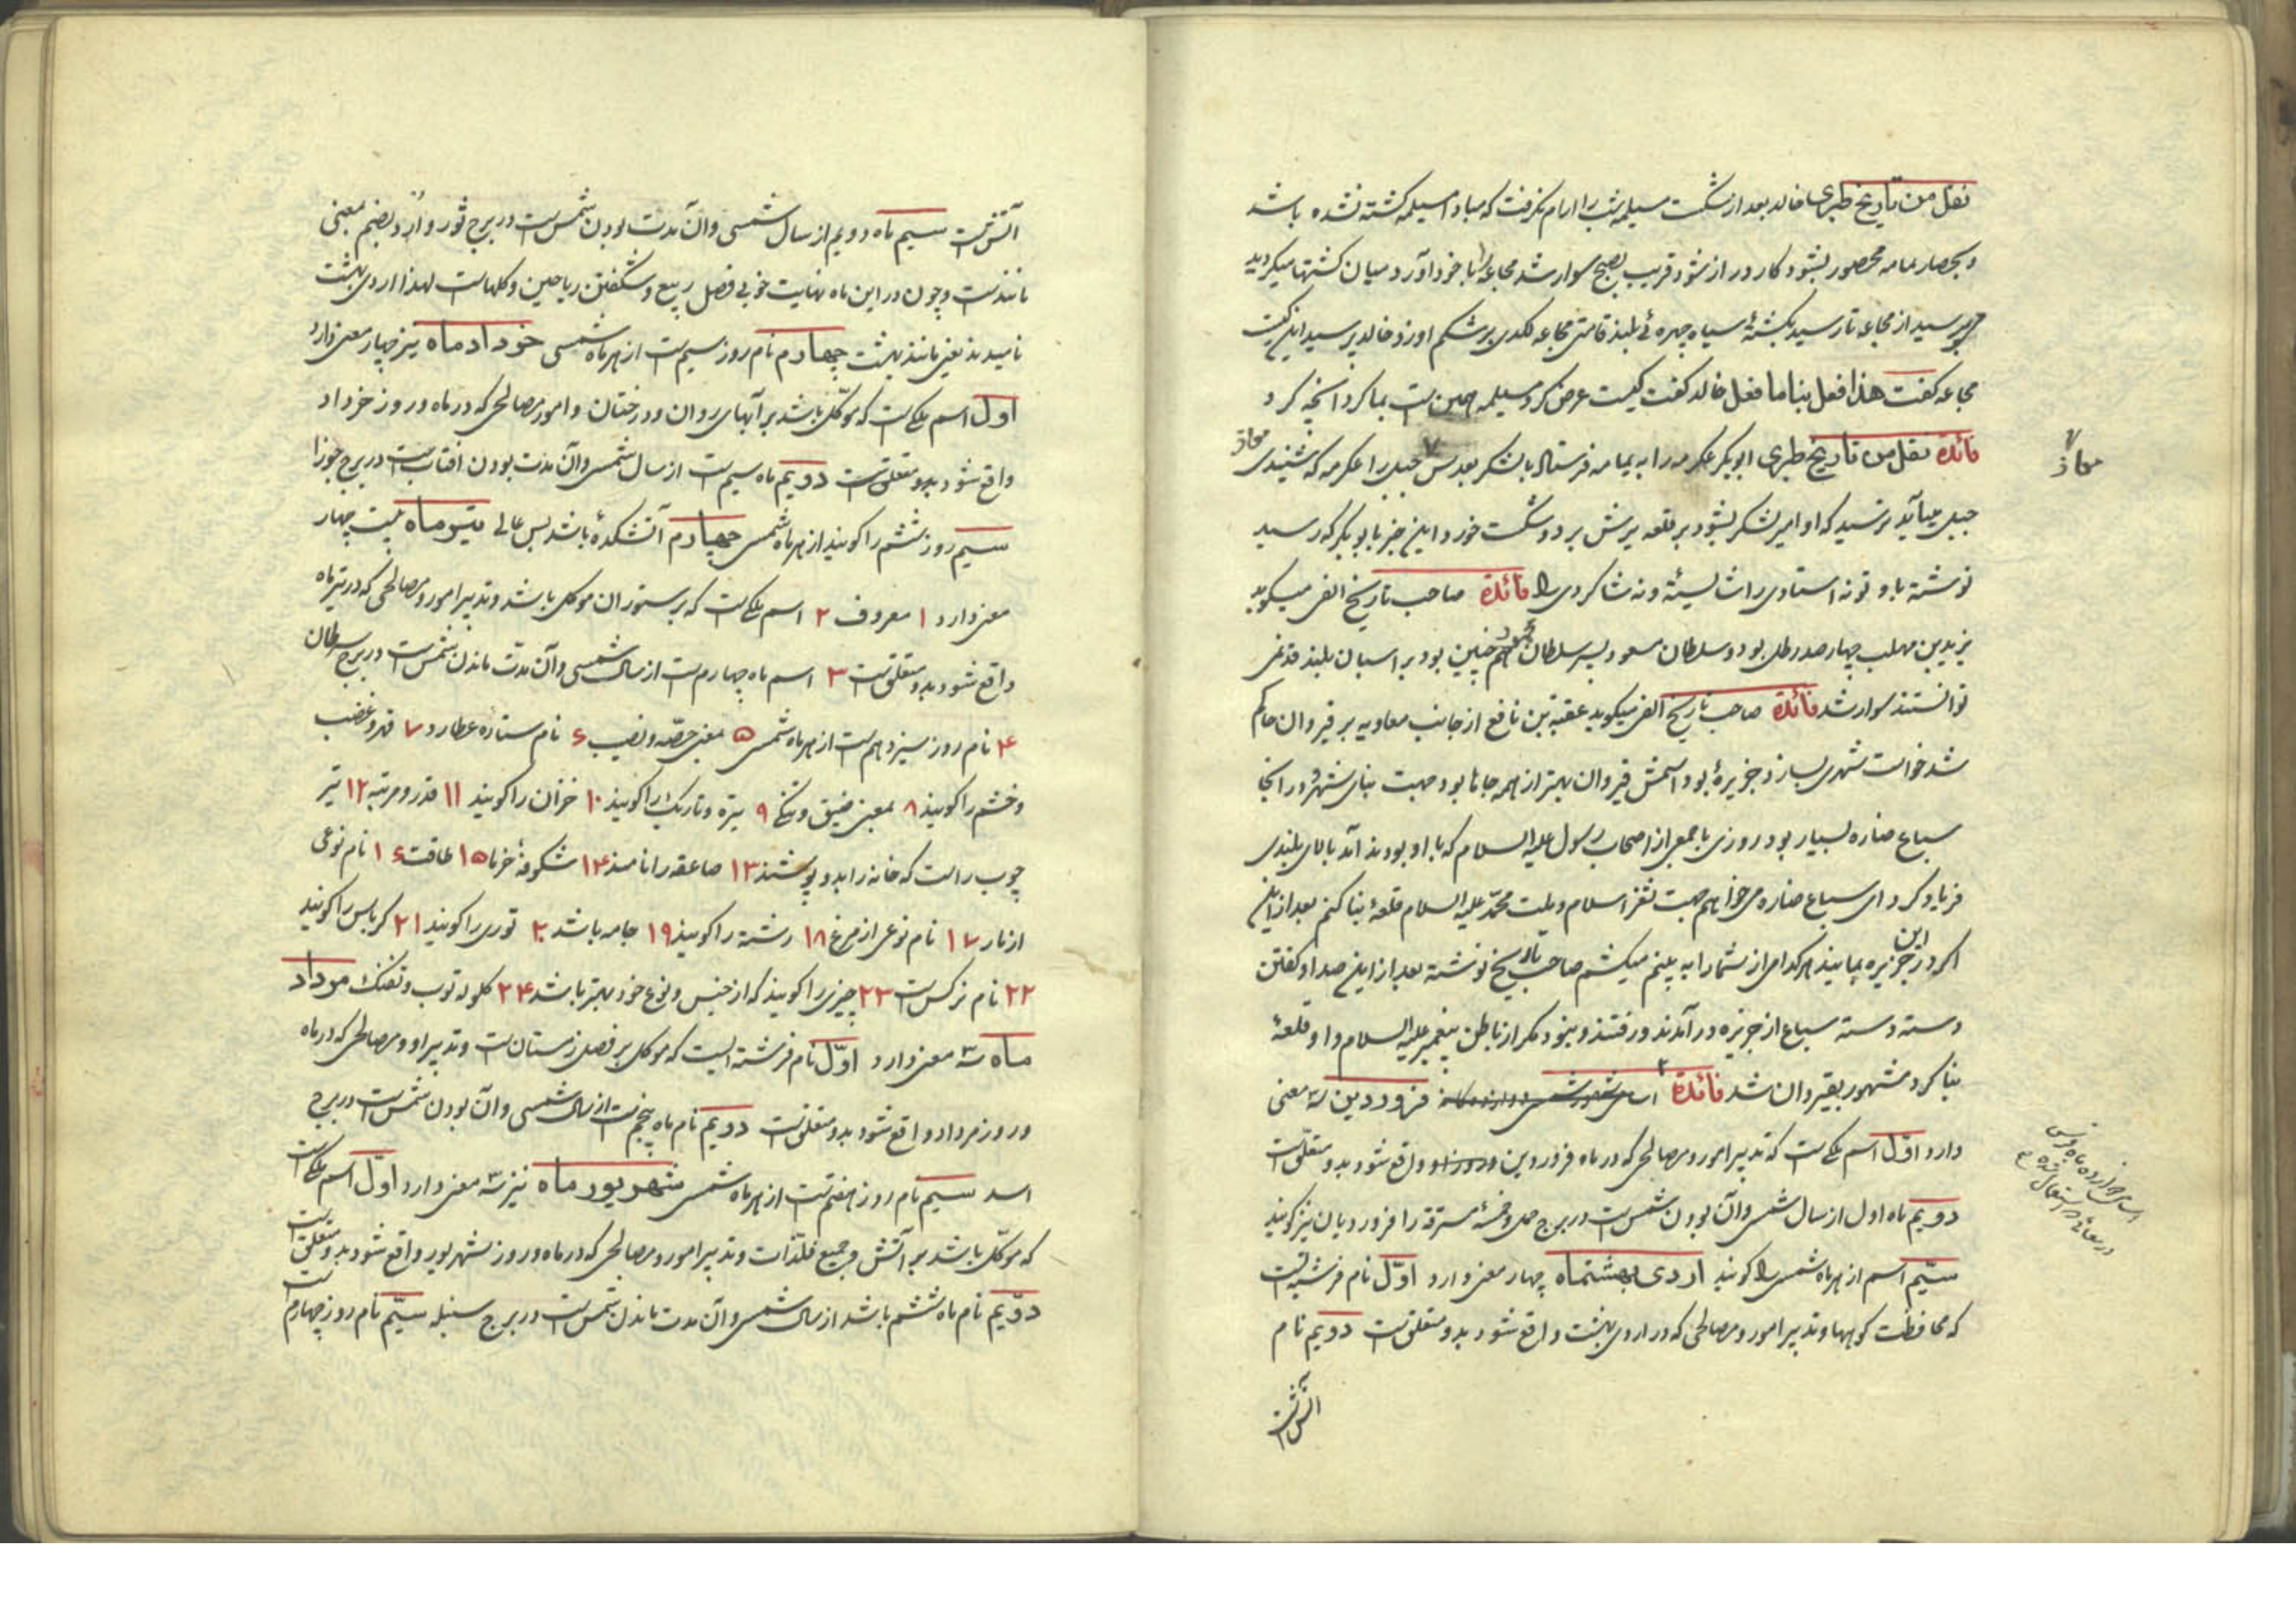 نقل من تاریخ طبری خالد بعد از شکست مسیلمه شب را آرام نگرفت که مبادا مسیلمه کشته نشده باشد
و بحصار یمامه محصور بشود کار دراز شود قریب بصبح سوار شد مجاعه را با خود آورد میان کشتها میکردید
می پرسید از مجاعه تا رسید بکشتهٔ سیاه چهرهٔ بلند قامتی مجاعه لکدی بر شکم او زد خالد پرسید این کیست
مجاعه کفت هذا فعل بنا ما فعل خالد کفت کیست عرض کرد مسیلمه همین است بما کرد آنچه کرد
فائدة نقل من تاریخ طبری ابوبکر عکرمه را به یمامه فرستاد با لشکر بعد پس جبل را عکرمه که شنیدی معاذ
معاذ
جبل میآید ترسید که او امیر لشکر بشود بر قلعه یرش برد و شکست خورد این خبر بابوبکر که رسید
نوشته باو تو نه استادی را شایستهٔ و نه شاکردی را فائدة صاحب تاریخ الفی میکوید
یزید بن مهلب چهار صد رطل بود و سلطان مسعود پسر سلطان محمود هم چنین بود بر اسبان بلند قد نمی
توانستند سوار شد فائدة صاحب تاریخ الفی میکوید عقبة بن نافع از جانب معاویه بر قیروان حاکم
شد خواست شهری بسازد جزیرهٔ بود اسمش قیروان بهتر از همه جاها بود جهت بنای شهر و در آنجا
سباع ضاره بسیار بود روزی با جمعی از اصحاب رسول علیه السلام که با او بودند آمد بالای بلندی
فریاد کرد ای سباع ضاره می خواهم جهت ثغر اسلام و ملت محمّد علیه السلام قلعهٔ بنا کنم بعد از این
اکر در این جزیره بمانید هر کدام از شما را به بینم میکشم صاحب تاریخ نوشته بعد از این صدا و کفتن
دسته دسته سباع از جزیره در آمدند و رفتند و نبود مکر از باطن پیغمبر علیه السلام و او قلعهٔ
بنا کرد مشهور بقیروان شد فائدة اسامی شهور شمسی فروردین سه معنی
دارد اوّل اسم ملکی است که تدبیر امور و مصالحی که در ماه فروردین و روز او واقع شود بدو متعلّق است
اسامی دوازده ماه فرسی
دویم ماه اول از سال شمسی و آن بودن شمس است در برج حمل و خمسهٔ مسترقه را فروردیان نیز کویند
سیّم اسم از هر ماه شمسی را کویند اردی بهشتماه چهار معنی دارد اوّل نام فرشته است
که محافظت کوهها و تدبیر امور و مصالحی که در اردی بهشت واقع شود بدو متعلق است دویم نام
آتش است
آتش است سیم ماه دویم از سال شمسی و آن مدت بودن شمس است در برج ثور و اَرد بضم بمعنی
مانند است و چون در این ماه نهایت خوبی فصل ربیع و شکفتن ریاحین و کلهاست لهذا اردی بهشت
نامیدند یعنی مانند بهشت چهارم نام روز سیم است از هر ماه شمسی خورداد ماه نیز چهار معنی دارد
اول اسم ملکی است که موکّل باشد بر آبهای روان و درختان و امور مصالحی که در ماه و روز خرداد
واقع شود بدو متعلق است دویم ماه سیم است از سال شمسی و آن مدت بودن آفتاب است در برج جوزا
سیم روز ششم را کویند از هر ماه شمسی چهارم آتشکدهٔ باشد بس عالی تیر ماه بیست چهار
معنی دارد ۱ معروف ۲ اسم ملکی است که بر ستوران موکل باشد و تدبیر امور و مصالحی که در تیر ماه
واقع شود بدو متعلق است ۳ اسم ماه چهارم است از سال شمسی و آن مدّت ماندن شمس است در برج سرطان
۴ نام روز سیزدهم است از هر ماه شمسی ۵ بمعنی حصّه و نصیب ۶ نام ستاره عطارد ۷ قهر و غضب
و خشم را کویند ۸ بمعنی ضیق و تنکی ۹ تیره و تاریک را کویند ۱۰ خزان را کویند ۱۱ قدر و مرتبه ۱۲ تیر
چوب راست که خانه را بدو پوشند ۱۳ صاعقه را نامند ۱۴ شکوفهٔ خرما ۱۵ طاقت ۱۶ نام نوعی
از مار ۱۷ نام نوعی از مرغ ۱۸ رشته را کویند ۱۹ جامه باشد ۲۰ توری را کویند ۲۱ کرباس را کویند
۲۲ نام نرکس است ۲۳ چیزی را کویند که از جنس و نوع خود بهتر باشد ۲۴ کلوله توپ و تفنک مرداد
ماه سه معنی دارد اوّل نام فرشته ایست که موکل بر فصل زمستان است و تدبیر او و مصالحی که در ماه
و روز مرداد واقع شود بدو متعلق است دویم نام ماه پنجم است از سال شمسی و آن بودن شمس است در برج
اسد سیم نام روز هفتم است از هر ماه شمسی شهریور ماه نیز سه معنی دارد اوّل اسم ملکی است
که موکّل باشد بر آتش و جمیع فلذّات و تدبیر امور و مصالحی که در ماه و روز شهریور واقع شود بدو متعلق است
دوّیم نام ماه ششم باشد از سال شمسی و آن مدت ماندن شمس است در برج سنبله سیّم نام روز چهارم است